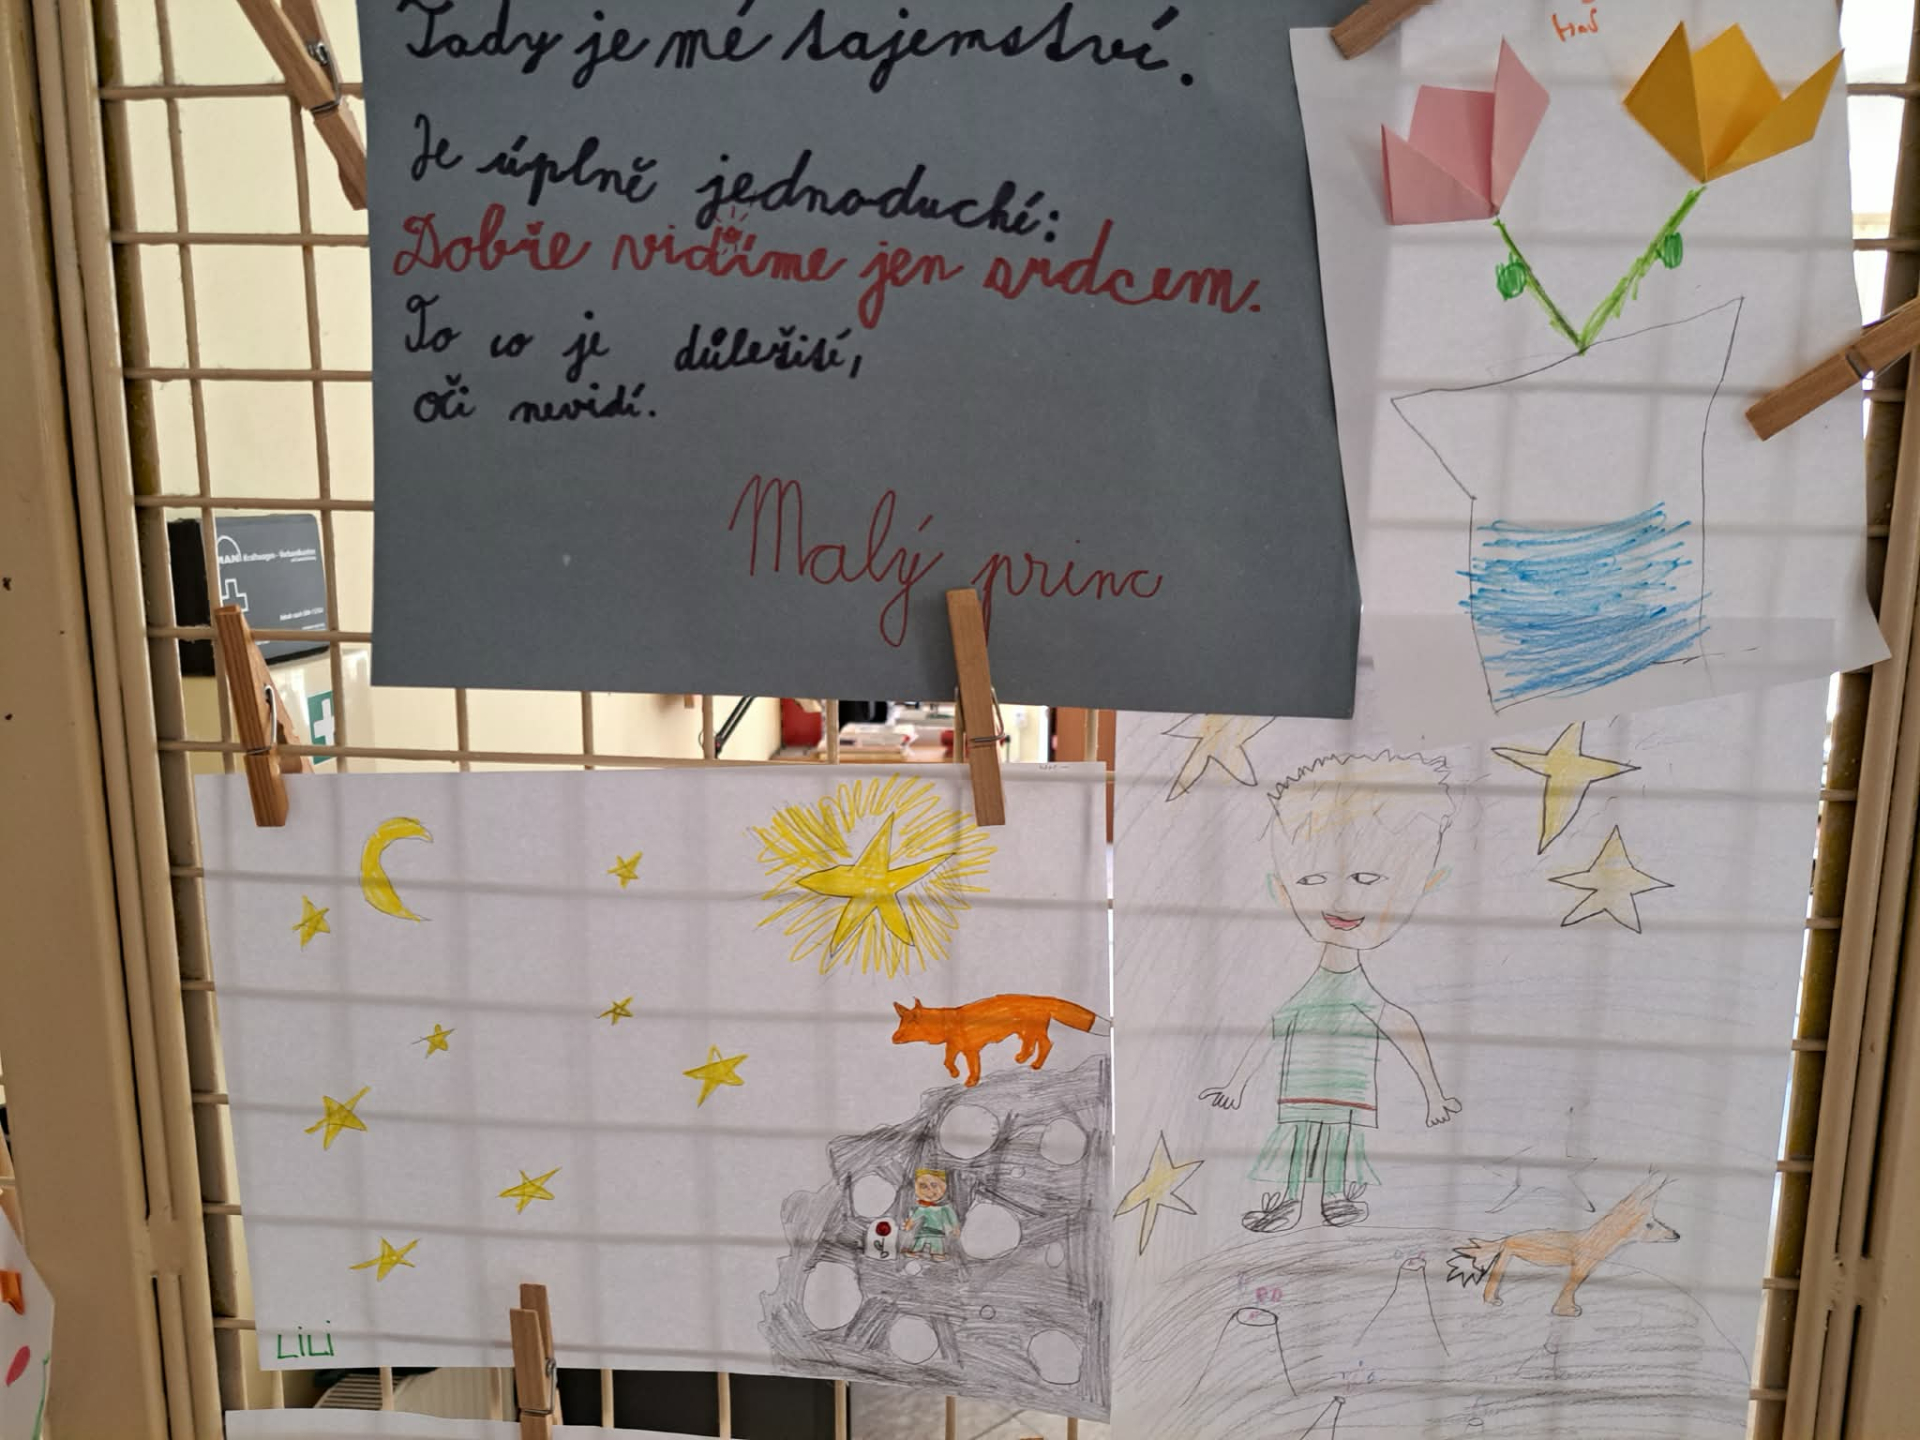 Tady je mé tajemství.
Je úplně jednoduché:
Dobře vidíme jen srdcem.
To co je důležité,
oči nevidí.
Malý princ
LiLi